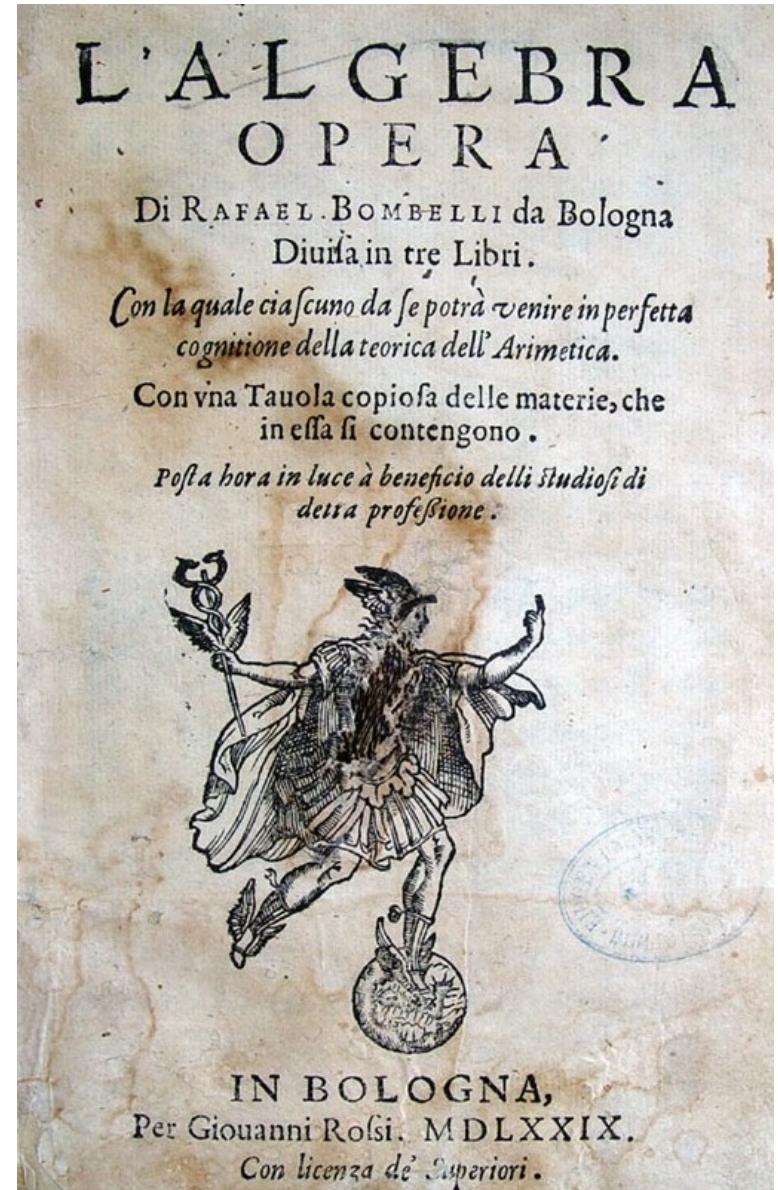 L'ALGEBRA
OPERA
Di RAFAEL BOMBELLI da Bologna
Diuiſa in tre Libri.
Con la quale ciaſcuno da ſe potrà venire in perfetta
cognitione della teorica dell'Arimetica.
Con vna Tauola copioſa delle materie, che
in eſſa ſi contengono.
Poſta hora in luce à beneficio delli ſtudioſi di
detta profeſſione.
IN BOLOGNA,
Per Giouanni Roſsi. MDLXXIX.
Con licenza de' Superiori.